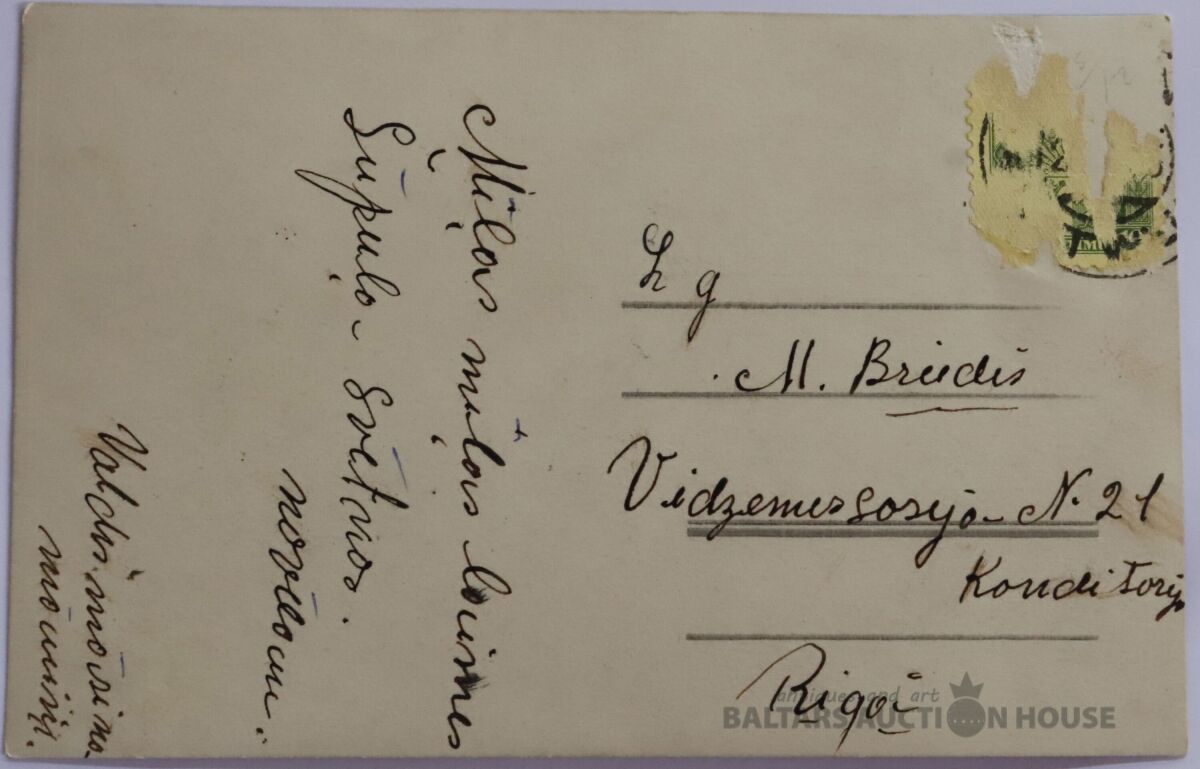 Mīļas mīļas laimes
Šūpuļa Svētkos.
novēlam.
Valdis. māsiņa
māmiņ.
M. Briedis
Vidzemessoseja N. 21
Konditorij
Rigā
antiques and art
BALTARS AUCTION HOUSE